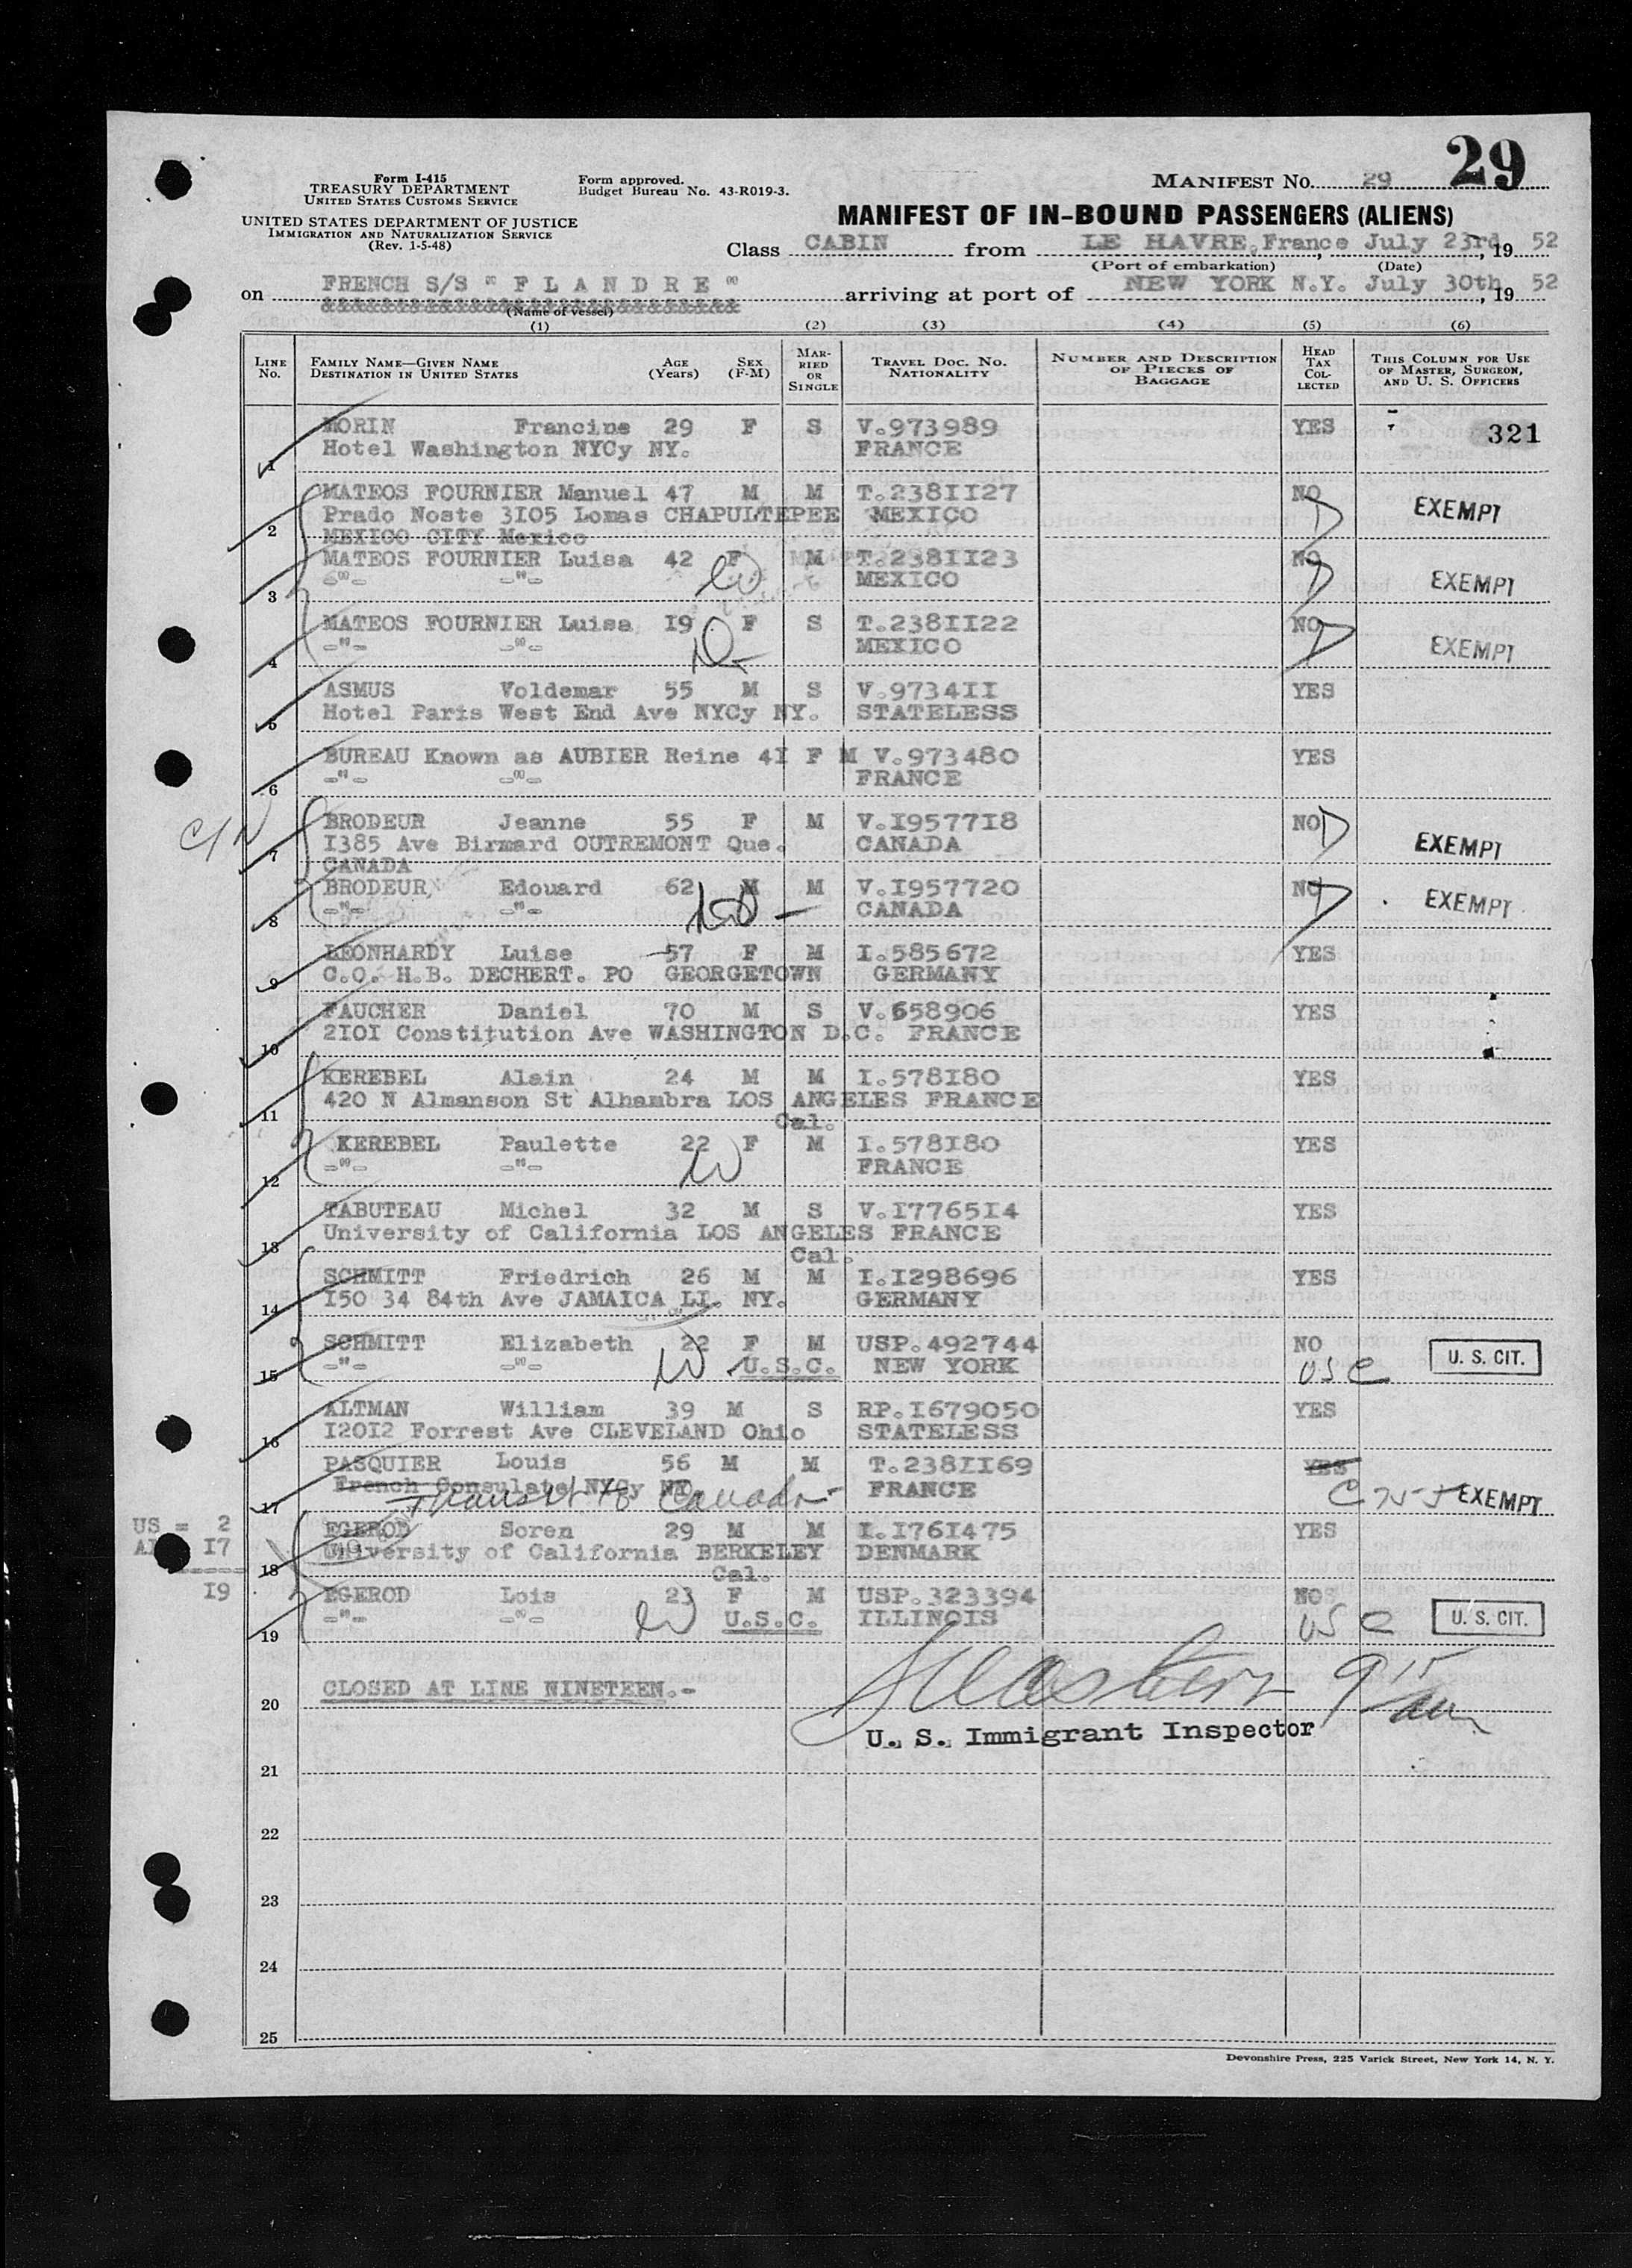 29
Form I-415
TREASURY DEPARTMENT
UNITED STATES CUSTOMS SERVICE
UNITED STATES DEPARTMENT OF JUSTICE
IMMIGRATION AND NATURALIZATION SERVICE
(Rev. 1-5-48)
Form approved.
Budget Bureau No. 43-R019-3.
MANIFEST No. 29
MANIFEST OF IN-BOUND PASSENGERS (ALIENS)
Class CABIN from LE HAVRE, France July 23rd, 19 52
(Port of embarkation) (Date)
on FRENCH S/S " F L A N D R E " arriving at port of NEW YORK N.Y. July 30th, 19 52
(Name of vessel)
(1) (2) (3) (4) (5) (6)
LINE No. FAMILY NAME—GIVEN NAME DESTINATION IN UNITED STATES AGE (Years) SEX (F-M) MARRIED OR SINGLE TRAVEL DOC. NO. NATIONALITY NUMBER AND DESCRIPTION OF PIECES OF BAGGAGE HEAD TAX COLLECTED THIS COLUMN FOR USE OF MASTER, SURGEON, AND U. S. OFFICERS
MORIN Francine 29 F S V.973989 YES 321
1 Hotel Washington NYCy NY. FRANCE
MATEOS FOURNIER Manuel 47 M M T.238II27 NO EXEMPT
2 Prado Noste 3I05 Lomas CHAPULTEPEE MEXICO
MEXICO CITY Mexico
MATEOS FOURNIER Luisa 42 F M T.238II23 NO EXEMPT
3 -"- -"- MEXICO
MATEOS FOURNIER Luisa I9 F S T.238II22 NO EXEMPT
4 -"- -"- MEXICO
ASMUS Voldemar 55 M S V.9734II YES
5 Hotel Paris West End Ave NYCy NY. STATELESS
BUREAU Known as AUBIER Reine 4I F M V.973480 YES
6 -"- -"- FRANCE
C/N
BRODEUR Jeanne 55 F M V.I9577I8 NO EXEMPT
7 I385 Ave Birmard OUTREMONT Que. CANADA
CANADA
BRODEUR, Edouard 62 M M V.I957720 NO EXEMPT
8 -"- -"- CANADA
LEONHARDY Luise 57 F M I.585672 YES
9 C.O. H.B. DECHERT. PO GEORGETOWN GERMANY
FAUCHER Daniel 70 M S V.658906 YES
10 2I0I Constitution Ave WASHINGTON D.C. FRANCE
KEREBEL Alain 24 M M I.578I80 YES
11 420 N Almanson St Alhambra LOS ANGELES FRANCE
Cal.
KEREBEL Paulette 22 F M I.578I80 YES
12 -"- -"- FRANCE
TABUTEAU Michel 32 M S V.I7765I4 YES
13 University of California LOS ANGELES FRANCE
Cal.
SCHMITT Friedrich 26 M M I.I298696 YES
14 I50 34 84th Ave JAMAICA LI. NY. GERMANY
SCHMITT Elizabeth 22 F M USP.492744 NO U. S. CIT.
15 -"- -"- U.S.C. NEW YORK USC
ALTMAN William 39 M S RP.I679050 YES
16 I20I2 Forrest Ave CLEVELAND Ohio STATELESS
PASQUIER Louis 56 M M T.238II69 YES
17 French Consulate NYCy NY FRANCE EXEMPT
Transit to Canada
US = 2
I7
I9
EGEROD Soren 29 M M I.I76I475 YES
18 University of California BERKELEY DENMARK
Cal.
EGEROD Lois 23 F M USP.323394 NO U. S. CIT.
19 -"- -"- U.S.C. ILLINOIS USC
20 CLOSED AT LINE NINETEEN.- 9 15 am
U. S. Immigrant Inspector
21
22
23
24
25
Devonshire Press, 225 Varick Street, New York 14, N. Y.